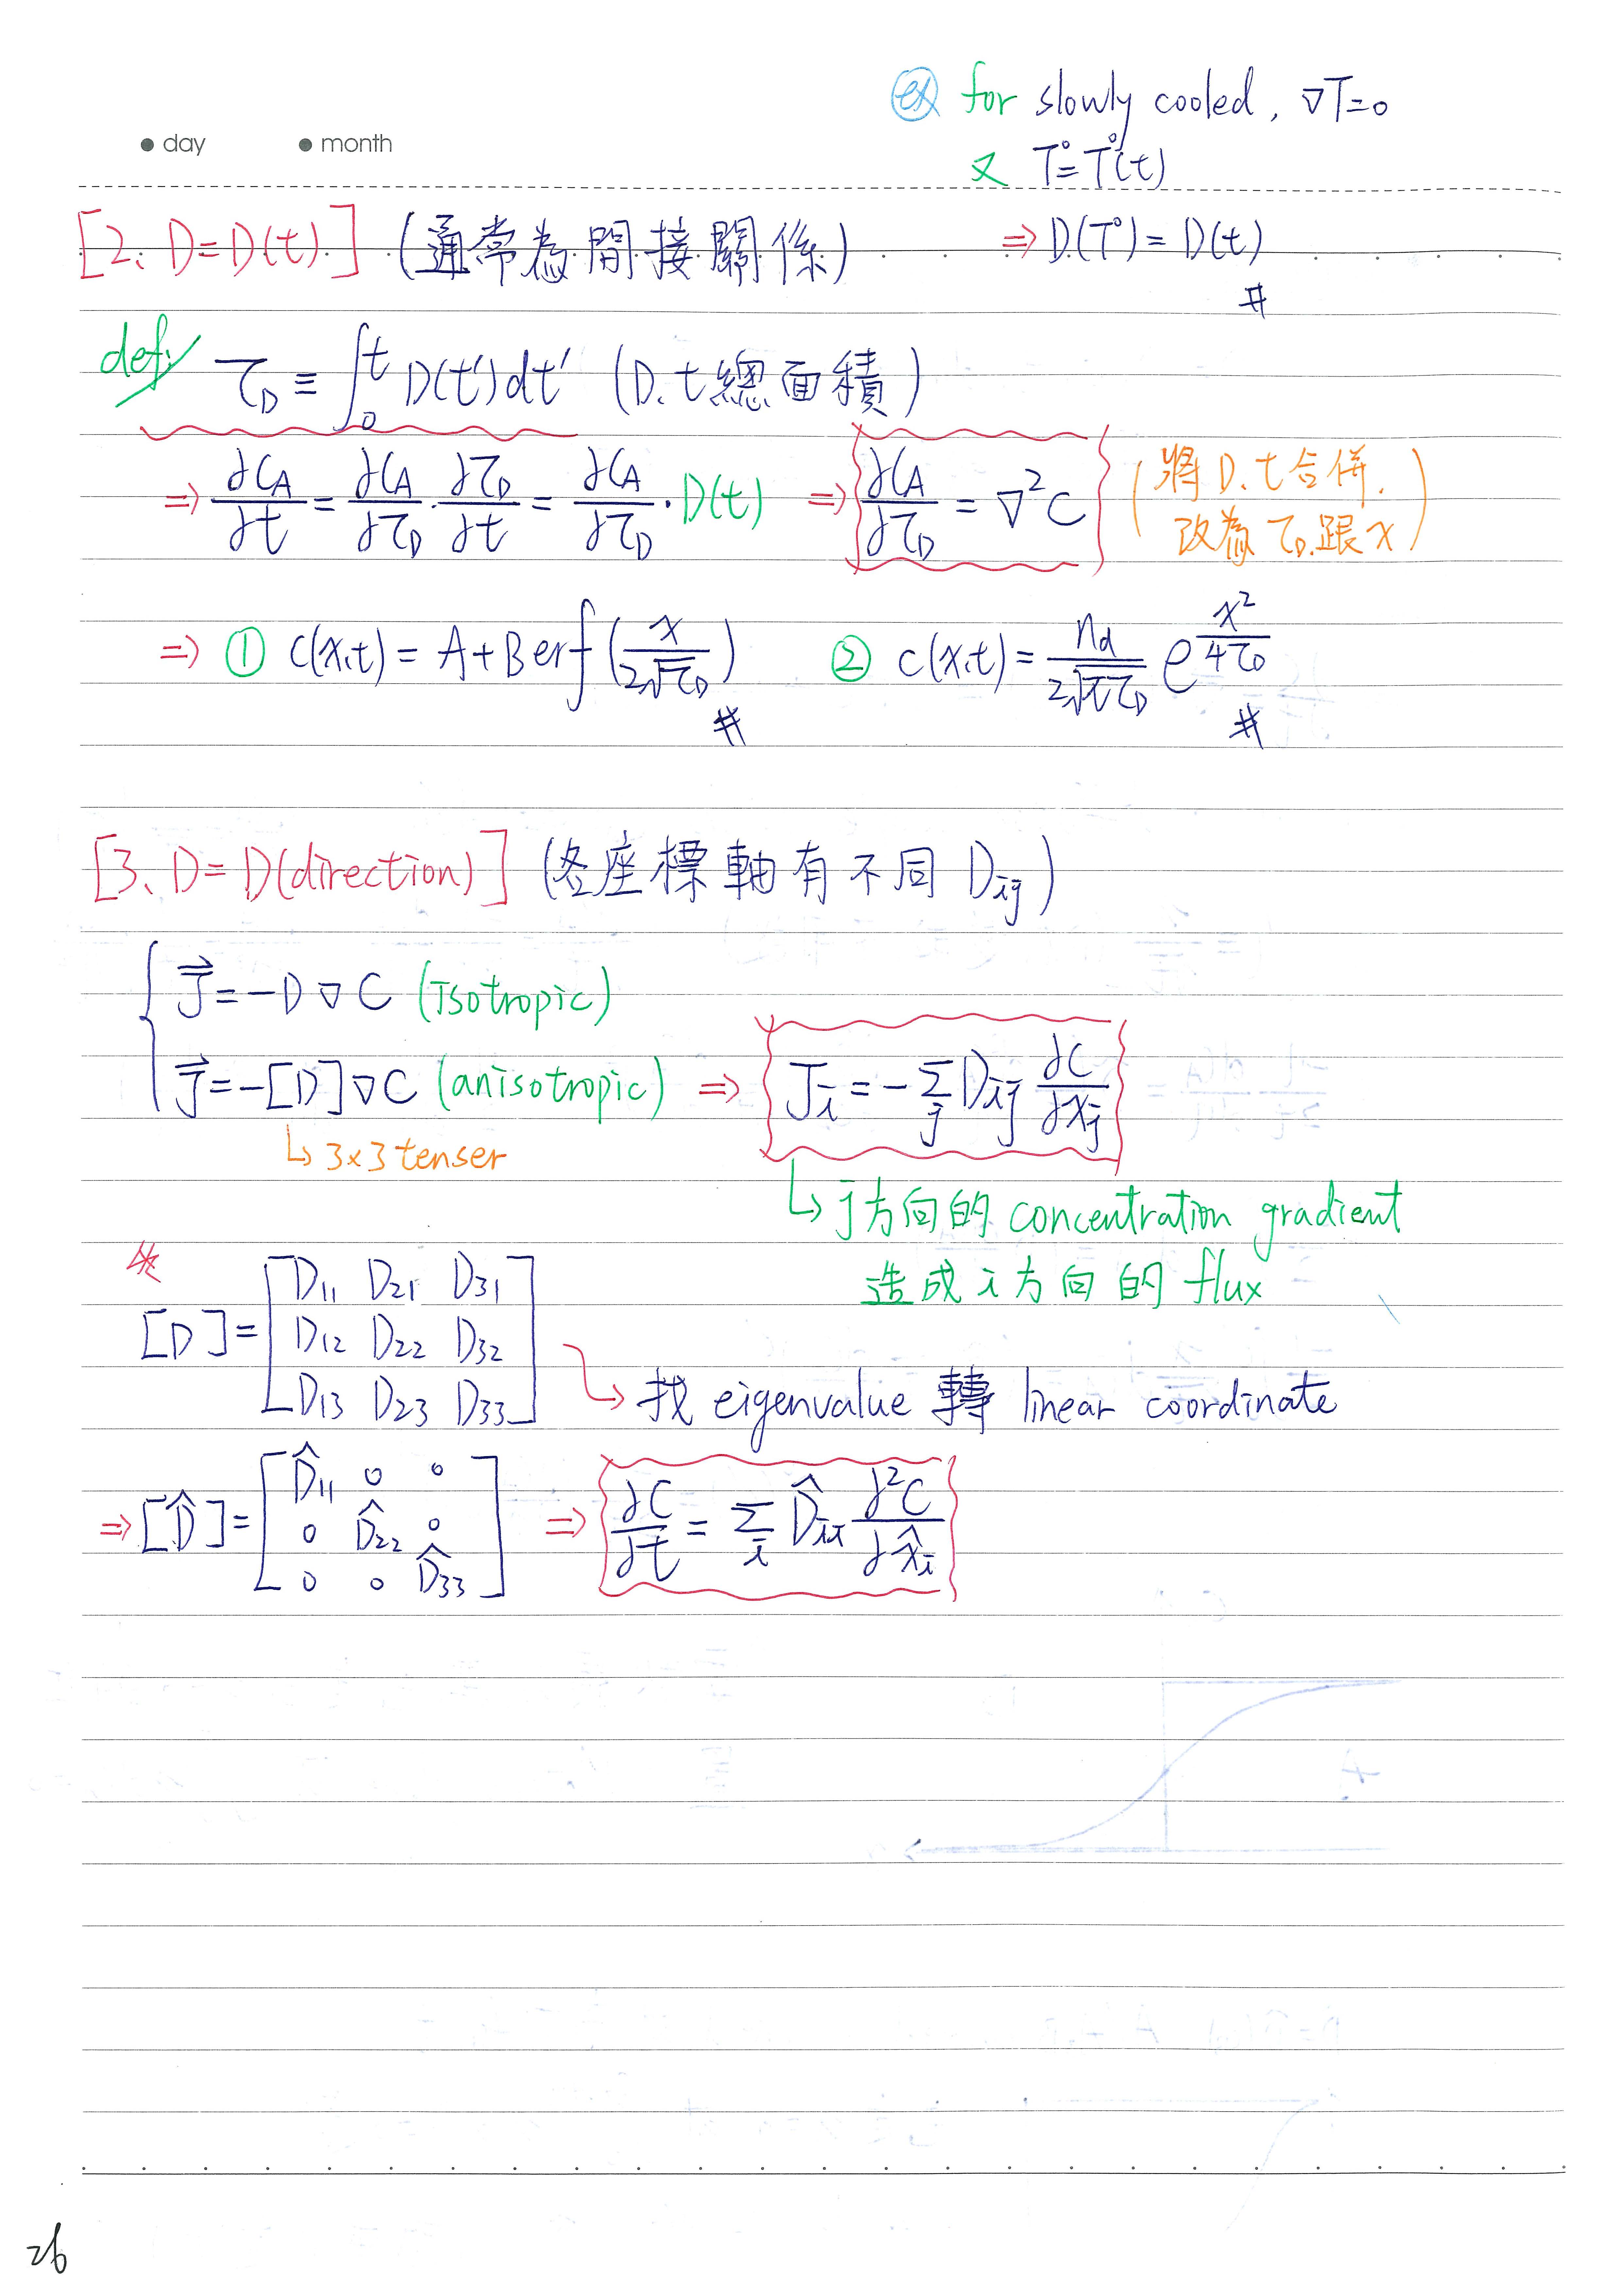 ex for slowly cooled, ∇T=0
• day • month
又 T°=T°(t)
[2、D=D(t)] (通常為間接關係) ⇒ D(T°) = D(t) #
def: τ_D ≡ ∫₀ᵗ D(t')dt' (D、t總面積)
⇒ ∂C_A/∂t = ∂C_A/∂τ_D · ∂τ_D/∂t = ∂C_A/∂τ_D · D(t) ⇒ ∂C_A/∂τ_D = ∇²C (將D、t合併、
改為τ_D跟x)
⇒ ① C(x,t) = A+B erf(x/2√τ_D) # ② C(x,t) = n_d/2√πτ_D e^(x²/4τ_D) #
[3、D= D(direction)] (各座標軸有不同 D_ij)
J = -D∇C (Isotropic)
J = -[D]∇C (anisotropic) ⇒ J_i = -Σ_j D_ij ∂C/∂x_j
↳ 3×3 tenser
↳ j方向的 concentration gradient
造成 i 方向的 flux
*
[D] = [D₁₁ D₂₁ D₃₁
D₁₂ D₂₂ D₃₂
D₁₃ D₂₃ D₃₃]
↳ 找 eigenvalue 轉 linear coordinate
⇒ [D̂] = [D̂₁₁ 0 0
0 D̂₂₂ 0
0 0 D̂₃₃]
⇒ ∂C/∂t = Σ_i D̂_ii ∂²C/∂x̂_i
26